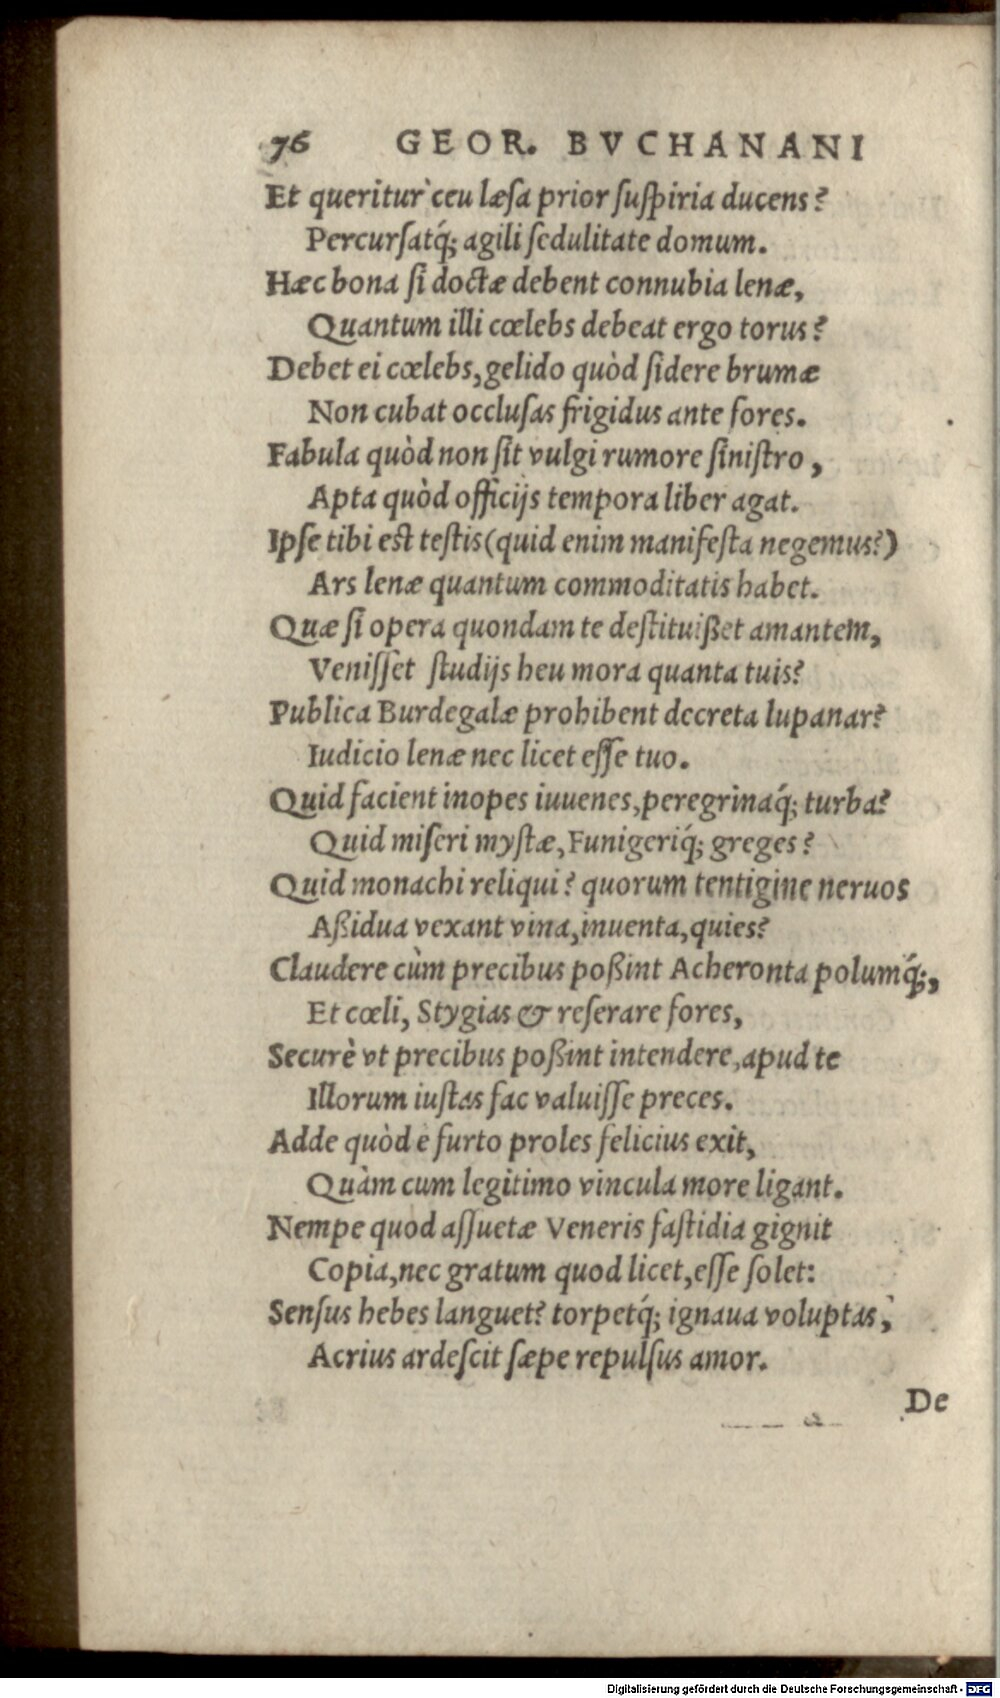 76 GEOR. BVCHANANI
Et queritur ceu læsa prior suspiria ducens?
Percursatq́; agili sedulitate domum.
Hæc bona si doctæ debent connubia lenæ,
Quantum illi cœlebs debeat ergo torus?
Debet ei cœlebs, gelido quòd sidere brumæ
Non cubat occlusas frigidus ante fores.
Fabula quòd non sit vulgi rumore sinistro,
Apta quòd officijs tempora liber agat.
Ipse tibi est testis (quid enim manifesta negemus?)
Ars lenæ quantum commoditatis habet.
Quæ si opera quondam te destituißet amantem,
Venisset studijs heu mora quanta tuis?
Publica Burdegalæ prohibent decreta lupanar?
Iudicio lenæ nec licet esse tuo.
Quid facient inopes iuuenes, peregrinaq́; turba?
Quid miseri mystæ, Funigeriq́; greges?
Quid monachi reliqui? quorum tentigine neruos
Aßidua vexant vina, inuenta, quies?
Claudere cùm precibus poßint Acheronta polumq́;,
Et cœli, Stygias & reserare fores,
Securè vt precibus poßint intendere, apud te
Illorum iustas fac valuisse preces.
Adde quòd e furto proles felicius exit,
Quàm cum legitimo vincula more ligant.
Nempe quod assuetæ Veneris fastidia gignit
Copia, nec gratum quod licet, esse solet:
Sensus hebes languet? torpetq́; ignaua voluptas,
Acrius ardescit sæpe repulsus amor.
De
Digitalisierung gefördert durch die Deutsche Forschungsgemeinschaft - DFG